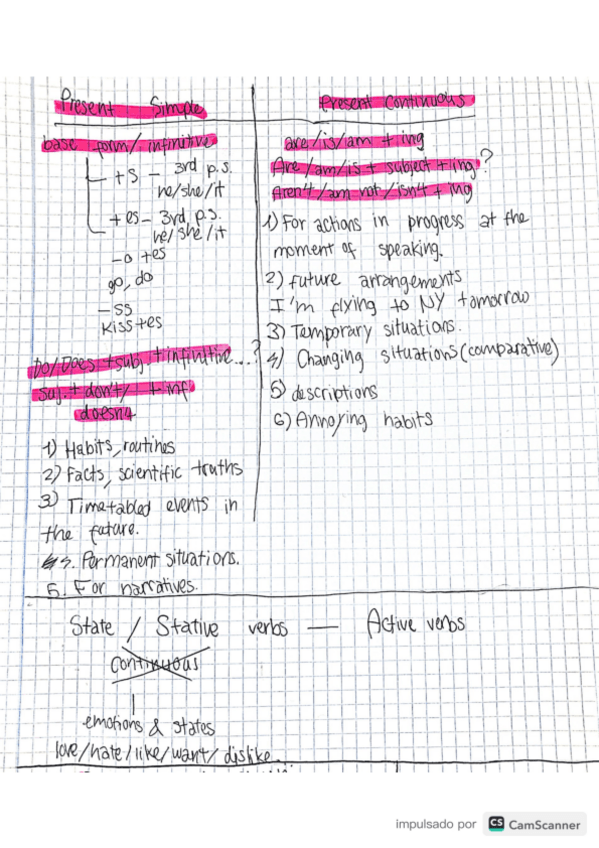 Present Simple
base form/infinitive
+s - 3rd p.s.
he/she/it
+es - 3rd p.s.
he/she/it
-o +es
go, do
-ss
kiss+es
Do/Does +subj. + infinitive...?
Suj. + don't/ + inf
doesn't
1) Habits, routines
2) Facts, scientific truths
3) Timetabled events in
the future.
Permanent situations.
5. For narratives.
Present Continuous
are/is/am + ing
Are/am/is + subject + ing?
Aren't/am not/isn't + ing
1) For actions in progress at the
moment of speaking.
2) future arrangements
I'm flying to NY tomorrow
3) Temporary situations.
4) Changing situations (comparative)
5) descriptions
6) Annoying habits
State / Stative verbs — Active verbs
Continuous
emotions & states
love/hate/like/want/dislike...
impulsado por CS CamScanner